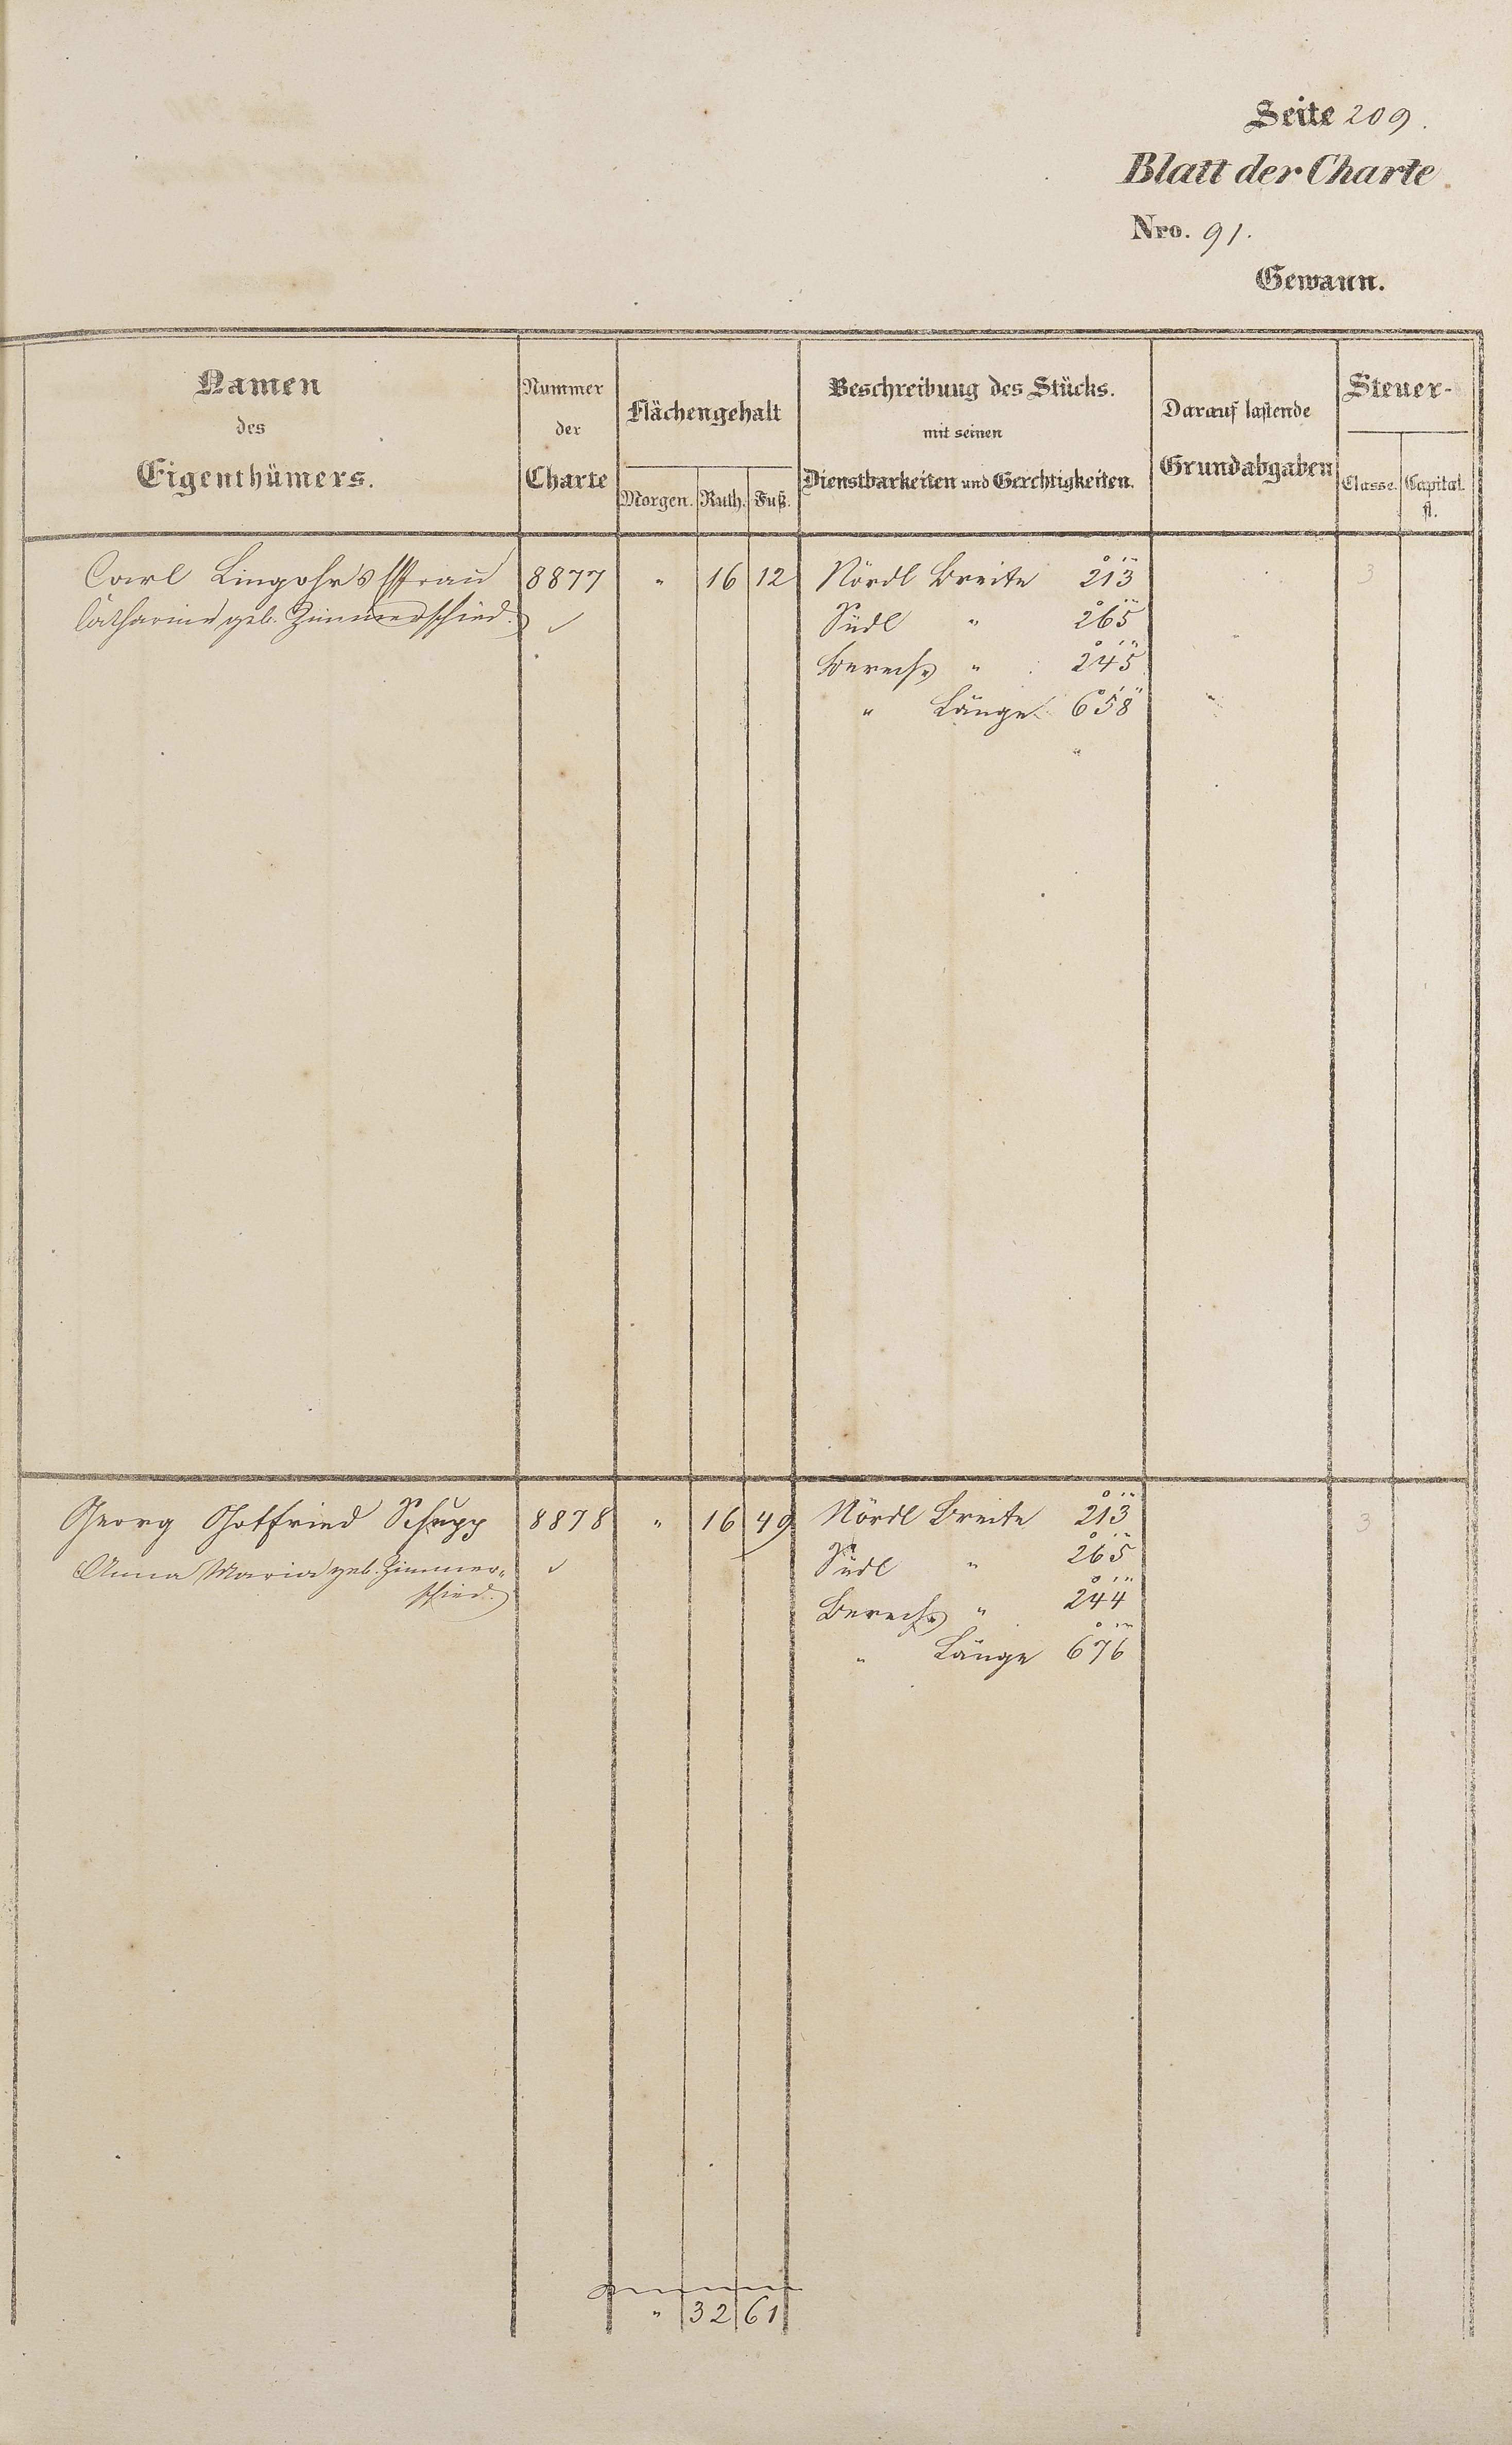 Seite 209.
Blatt der Charte
Nro. 91.
Gewann.
Namen
des
Eigenthümers.
Nummer
der
Charte
Flächengehalt
Morgen. Ruth. Fuß.
Beschreibung des Stücks.
mit seinen
Dienstbarkeiten und Gerechtigkeiten.
Darauf lastende
Grundabgaben
Steuer-
Classe. Capital.
fl.
Carl Lingohrs Frau 8877 " 16 12 Nördl Breite 213 3
Catharine geb. Zimmerschied. ✓ Südl " 265
Berech " 245
" Länge 658
Georg Gottfried Schupp 8878 " 16 49 Nördl Breite 213 3
Anna Maria geb. Zimmer= ✓ Südl " 265
schied. Berech " 244
" Länge 676
" 32 61